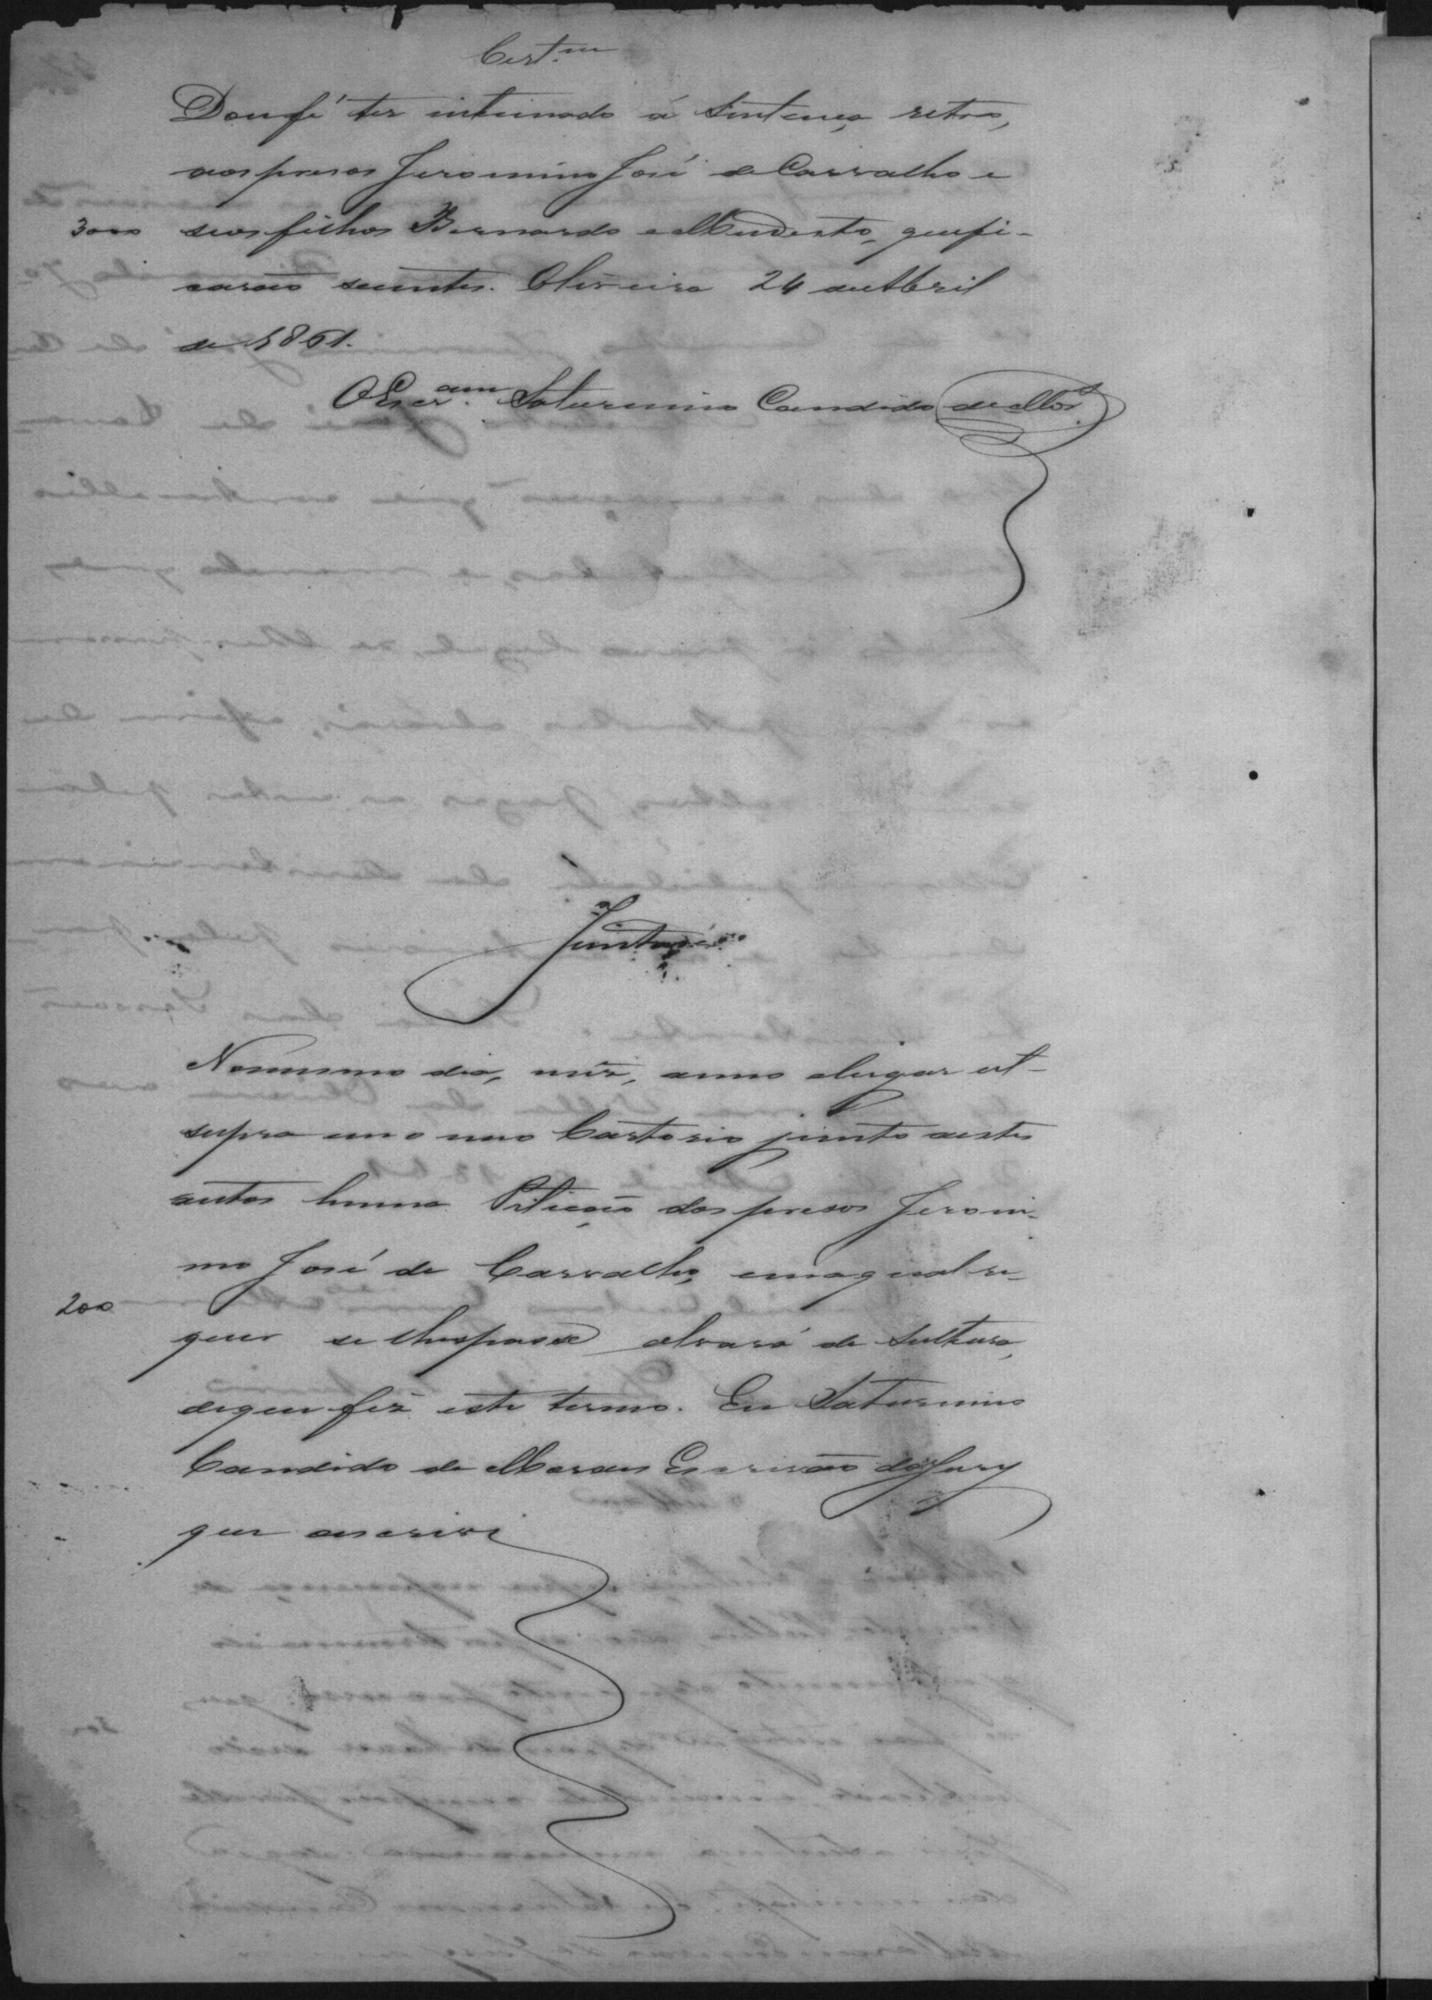 Cert.m
Dou fé ter intimado á Sentença retro,
aos presos Jeronimo José de Carvalho e
3000 seos filhos Bernardo e Modesto, que fi-
carão scientes. Oliveira 24 de Abril
de 1861.
O Escr.am Saturnino Candido de Mor.s
Juntada
No mesmo dia, mez, anno e lugar ut-
supra em o meo Cartorio junto a estes
autos huma Petição dos presos Jeroni-
mo José de Carvalho, em a qual re-
200
quer se lhes passe alvará de Soltura,
de que fiz este termo. Eu Saturnino
Candido de Moraes Escrivão do Jury
que escrevi